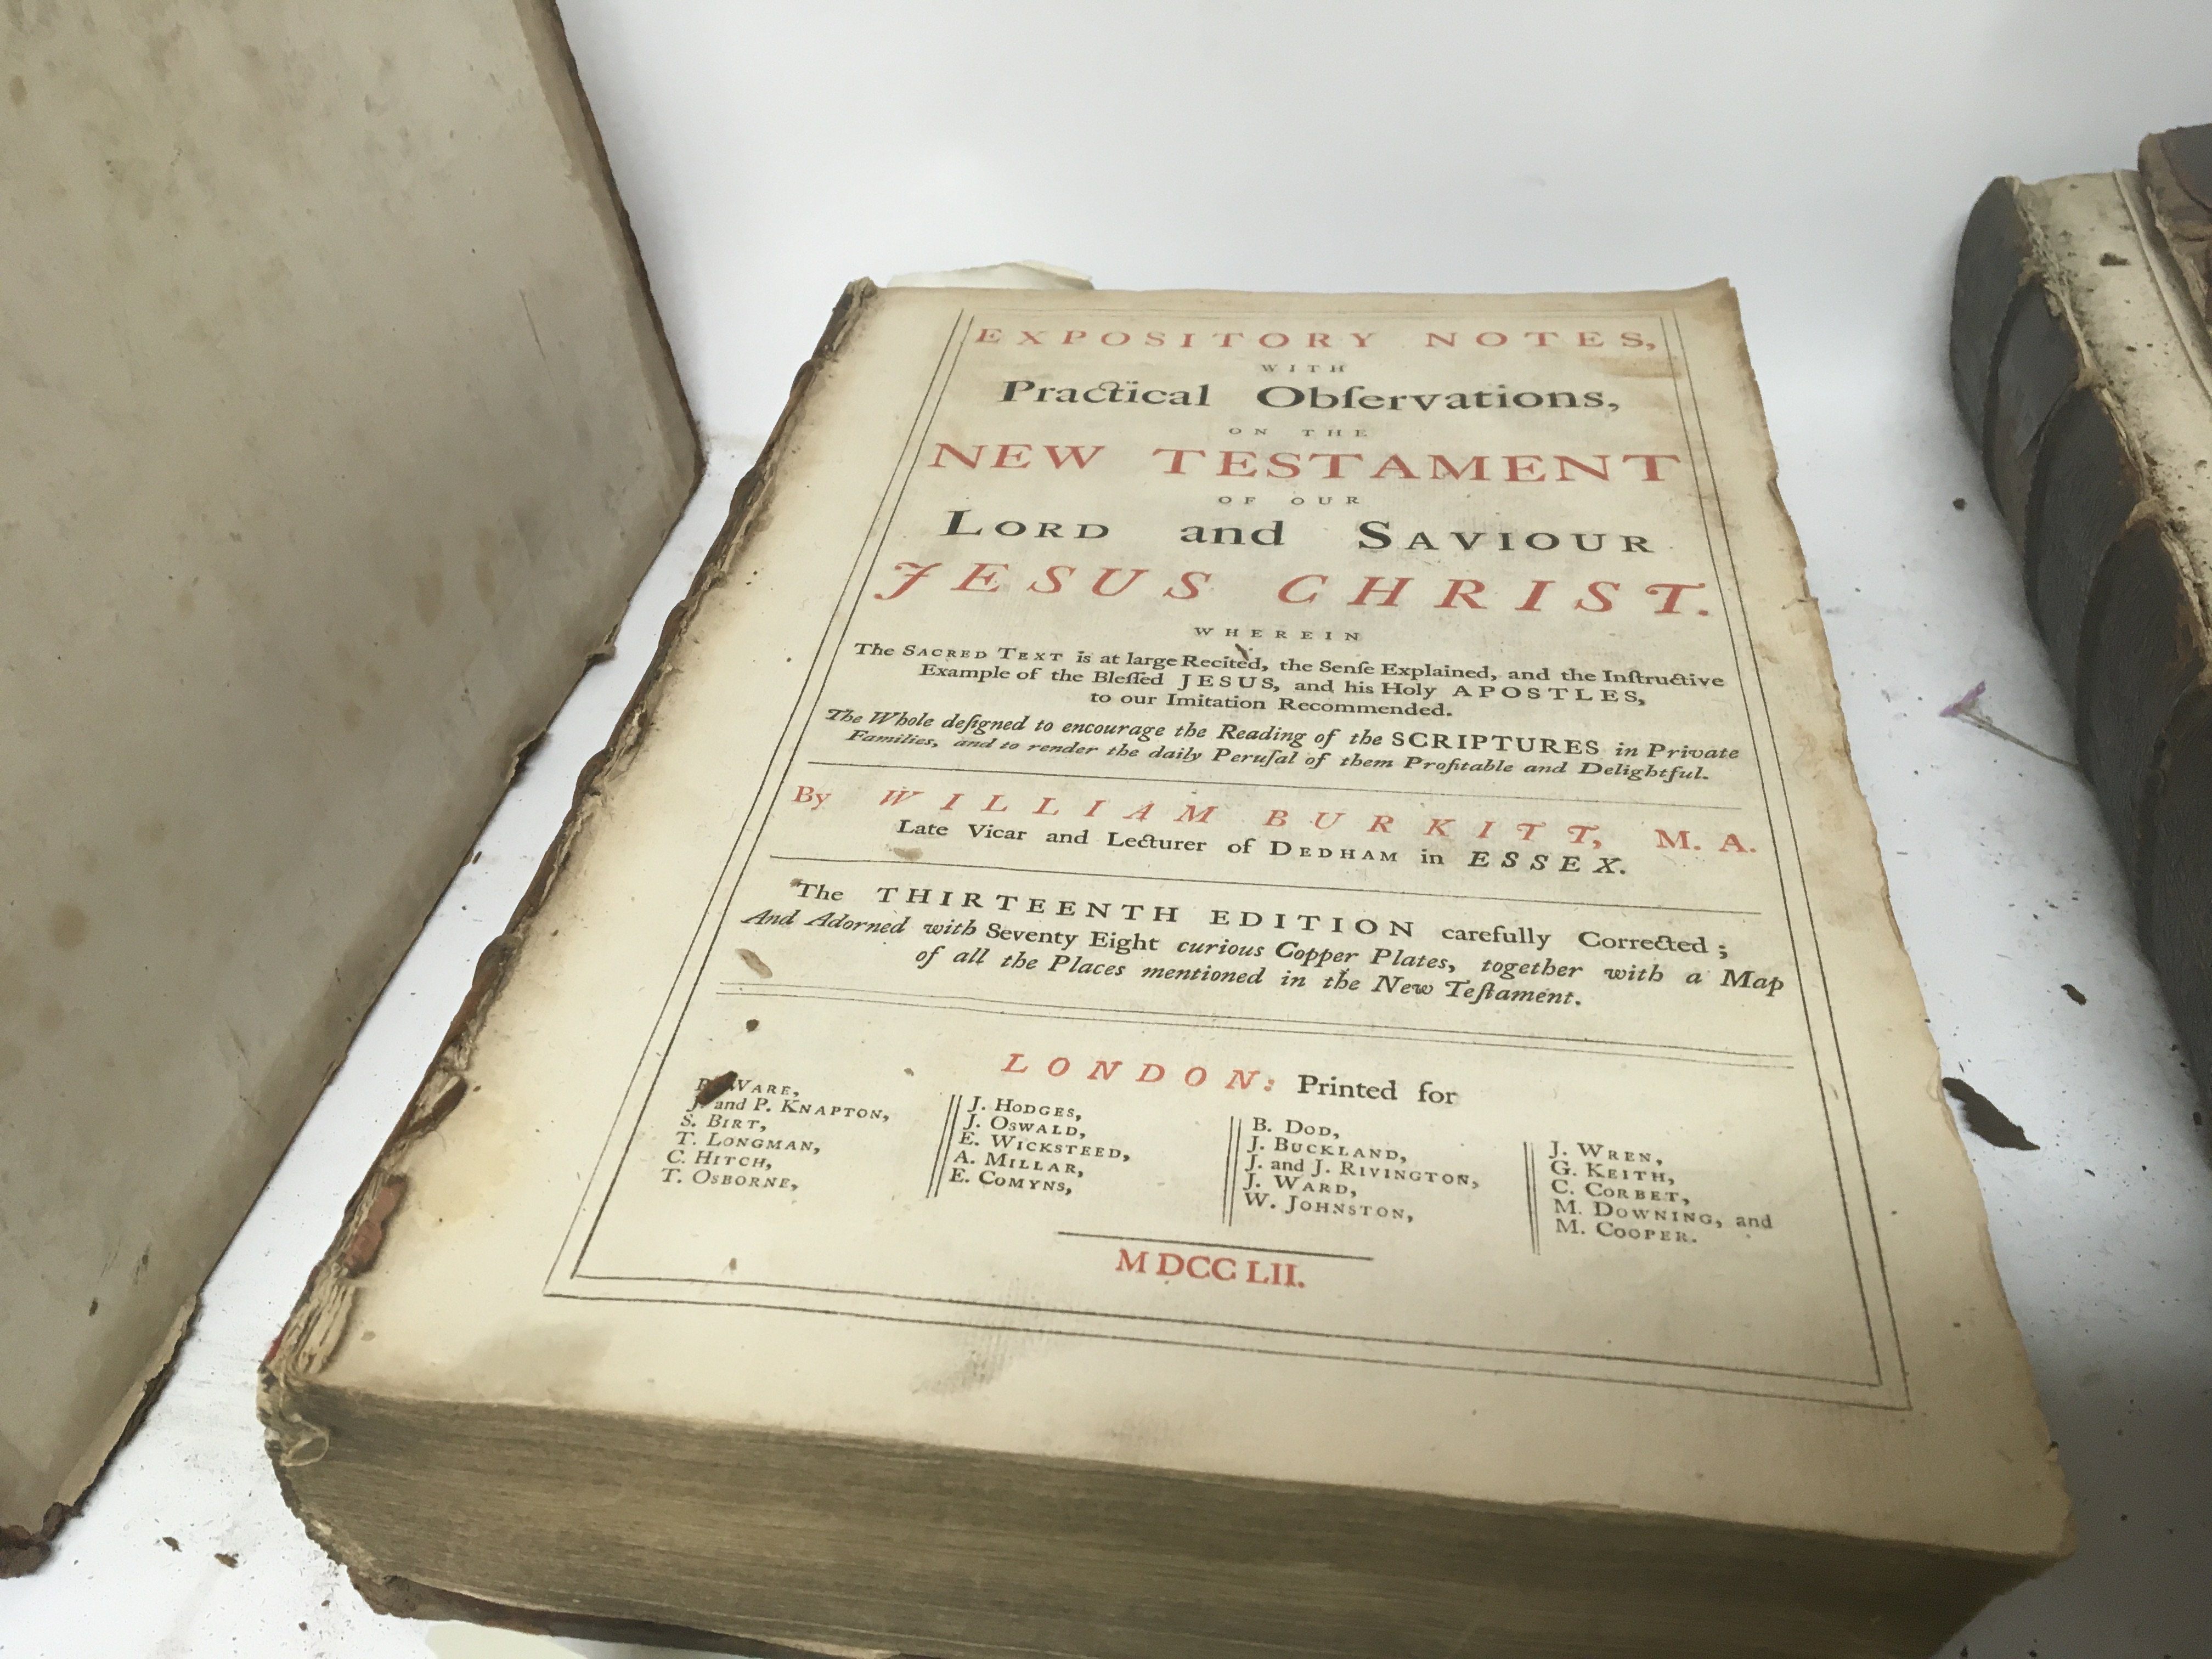 EXPOSITORY NOTES,
WITH
Practical Obſervations,
ON THE
NEW TESTAMENT
OF OUR
LORD and SAVIOUR
JESUS CHRIST.
WHEREIN
The SACRED TEXT is at large Recited, the Senſe Explained, and the Inſtructive
Example of the Bleſſed JESUS, and his Holy APOSTLES,
to our Imitation Recommended.
The Whole deſigned to encourage the Reading of the SCRIPTURES in Private
Families, and to render the daily Peruſal of them Profitable and Delightful.
By WILLIAM BURKITT, M. A.
Late Vicar and Lecturer of DEDHAM in ESSEX.
The THIRTEENTH EDITION carefully Corrected;
And Adorned with Seventy Eight curious Copper Plates, together with a Map
of all the Places mentioned in the New Teſtament.
LONDON: Printed for
WARE,
J. and P. KNAPTON,
S. BIRT,
T. LONGMAN,
C. HITCH,
T. OSBORNE,
J. HODGES,
J. OSWALD,
E. WICKSTEED,
A. MILLAR,
E. COMYNS,
B. DOD,
J. BUCKLAND,
J. and J. RIVINGTON,
J. WARD,
W. JOHNSTON,
J. WREN,
G. KEITH,
C. CORBET,
M. DOWNING, and
M. COOPER.
MDCCLII.